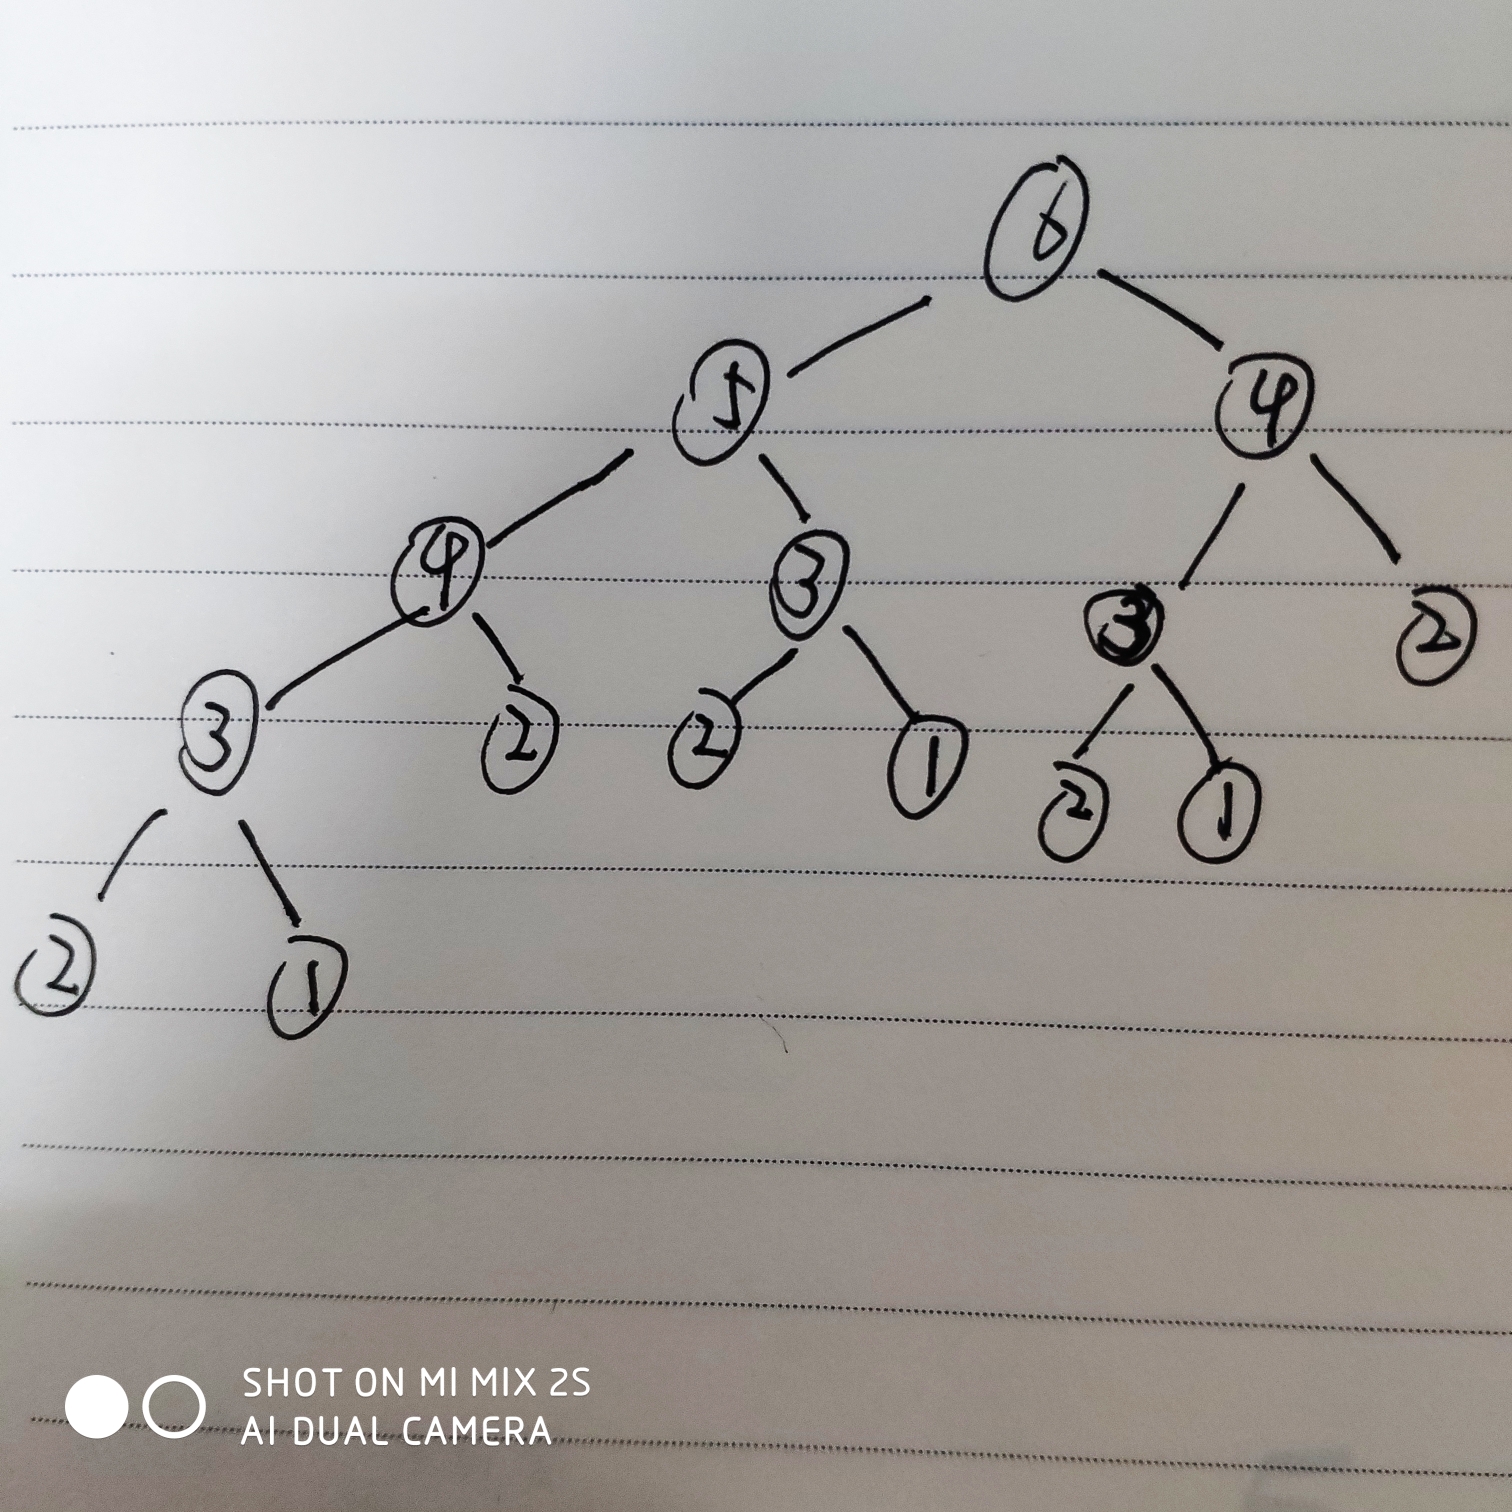 6
5 4
4 3 3 2
3 2 2 1 2 1
2 1
SHOT ON MI MIX 2S
AI DUAL CAMERA